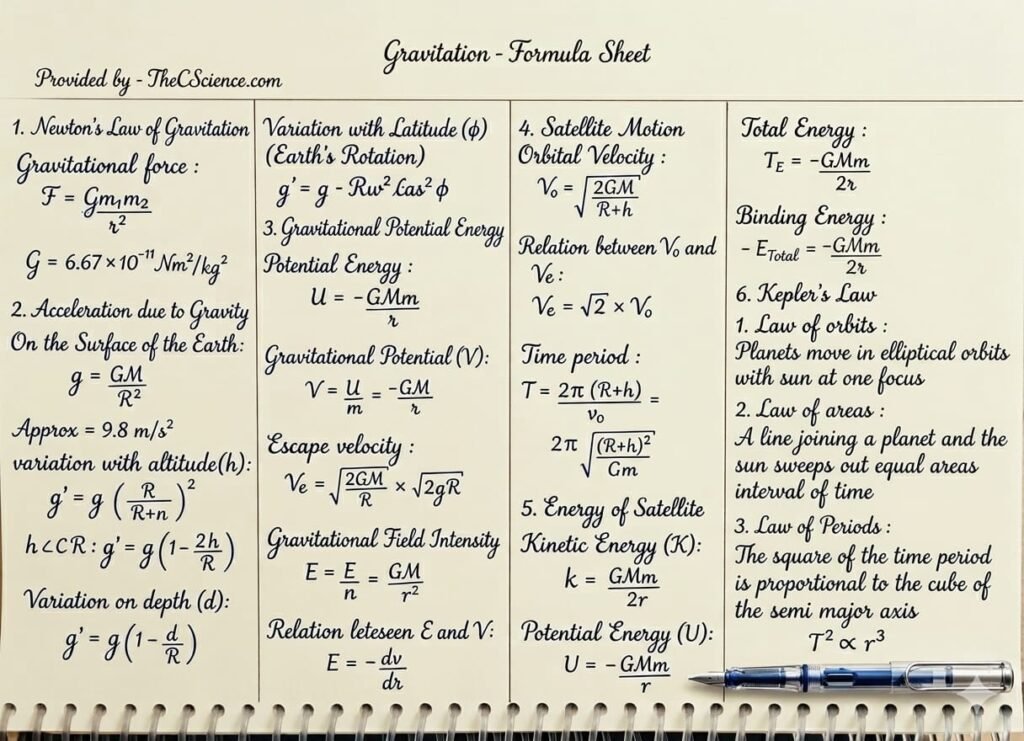 Gravitation - Formula Sheet
Provided by - TheCScience.com
1. Newton's Law of Gravitation
Gravitational force :
F = Gm₁m₂ / r²
G = 6.67 × 10⁻¹¹ Nm²/kg²
2. Acceleration due to Gravity
On the Surface of the Earth:
g = GM / R²
Approx = 9.8 m/s²
variation with altitude(h):
g' = g (R / R+n)²
h<CR : g' = g(1 - 2h/R)
Variation on depth (d):
g' = g(1 - d/R)
Variation with Latitude (ϕ)
(Earth's Rotation)
g' = g - Rω² Cas² ϕ
3. Gravitational Potential Energy
Potential Energy :
U = -GMm / r
Gravitational Potential (V):
V = U/m = -GM/r
Escape velocity :
Ve = √(2GM/R) × √2gR
Gravitational Field Intensity
E = E/n = GM/r²
Relation leteseen E and V:
E = - dv/dr
4. Satellite Motion
Orbital Velocity :
V₀ = √(2GM / R+h)
Relation between V₀ and
Ve :
Ve = √2 × V₀
Time period :
T = 2π (R+h) / v₀ =
2π √((R+h)² / Gm)
5. Energy of Satellite
Kinetic Energy (K):
k = GMm / 2r
Potential Energy (U):
U = - GMm / r
Total Energy :
T_E = -GMm / 2r
Binding Energy :
- E_Total = -GMm / 2r
6. Kepler's Law
1. Law of orbits :
Planets move in elliptical orbits
with sun at one focus
2. Law of areas :
A line joining a planet and the
sun sweeps out equal areas
interval of time
3. Law of Periods :
The square of the time period
is proportional to the cube of
the semi major axis
T² ∝ r³